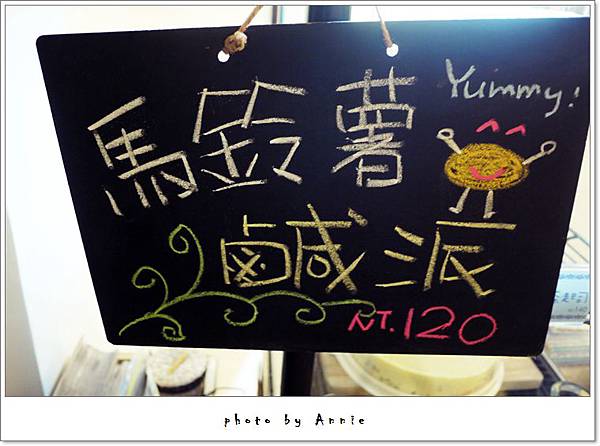 Yummy!
馬鈴薯
鹹派
NT.120
photo by Annie